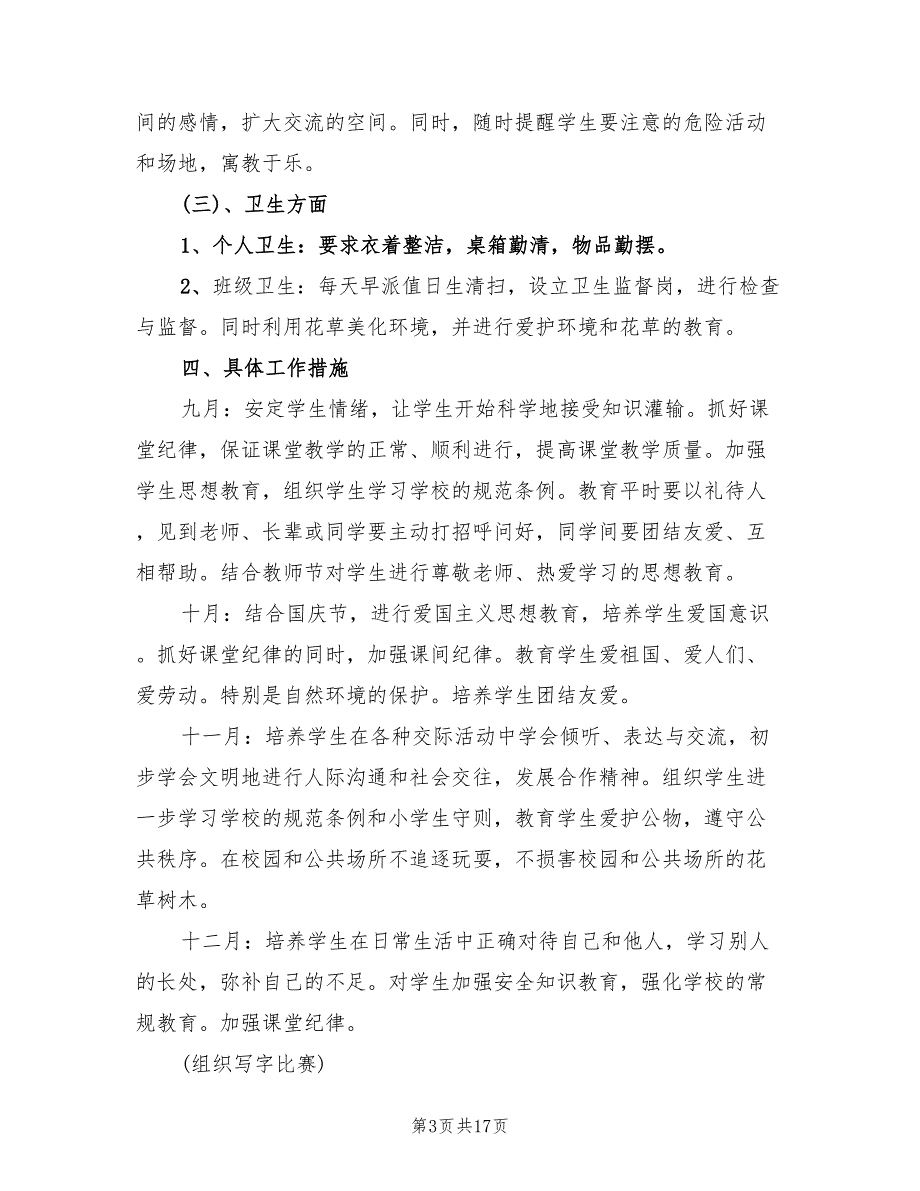 间的感情，扩大交流的空间。同时，随时提醒学生要注意的危险活动
和场地，寓教于乐。
(三)、卫生方面
1、个人卫生：要求衣着整洁，桌箱勤清，物品勤摆。
2、班级卫生：每天早派值日生清扫，设立卫生监督岗，进行检查
与监督。同时利用花草美化环境，并进行爱护环境和花草的教育。
四、具体工作措施
九月：安定学生情绪，让学生开始科学地接受知识灌输。抓好课
堂纪律，保证课堂教学的正常、顺利进行，提高课堂教学质量。加强
学生思想教育，组织学生学习学校的规范条例。教育平时要以礼待人
，见到老师、长辈或同学要主动打招呼问好，同学间要团结友爱、互
相帮助。结合教师节对学生进行尊敬老师、热爱学习的思想教育。
十月：结合国庆节，进行爱国主义思想教育，培养学生爱国意识
。抓好课堂纪律的同时，加强课间纪律。教育学生爱祖国、爱人们、
爱劳动。特别是自然环境的保护。培养学生团结友爱。
十一月：培养学生在各种交际活动中学会倾听、表达与交流，初
步学会文明地进行人际沟通和社会交往，发展合作精神。组织学生进
一步学习学校的规范条例和小学生守则，教育学生爱护公物，遵守公
共秩序。在校园和公共场所不追逐玩耍，不损害校园和公共场所的花
草树木。
十二月：培养学生在日常生活中正确对待自己和他人，学习别人
的长处，弥补自己的不足。对学生加强安全知识教育，强化学校的常
规教育。加强课堂纪律。
(组织写字比赛)
第3页共17页